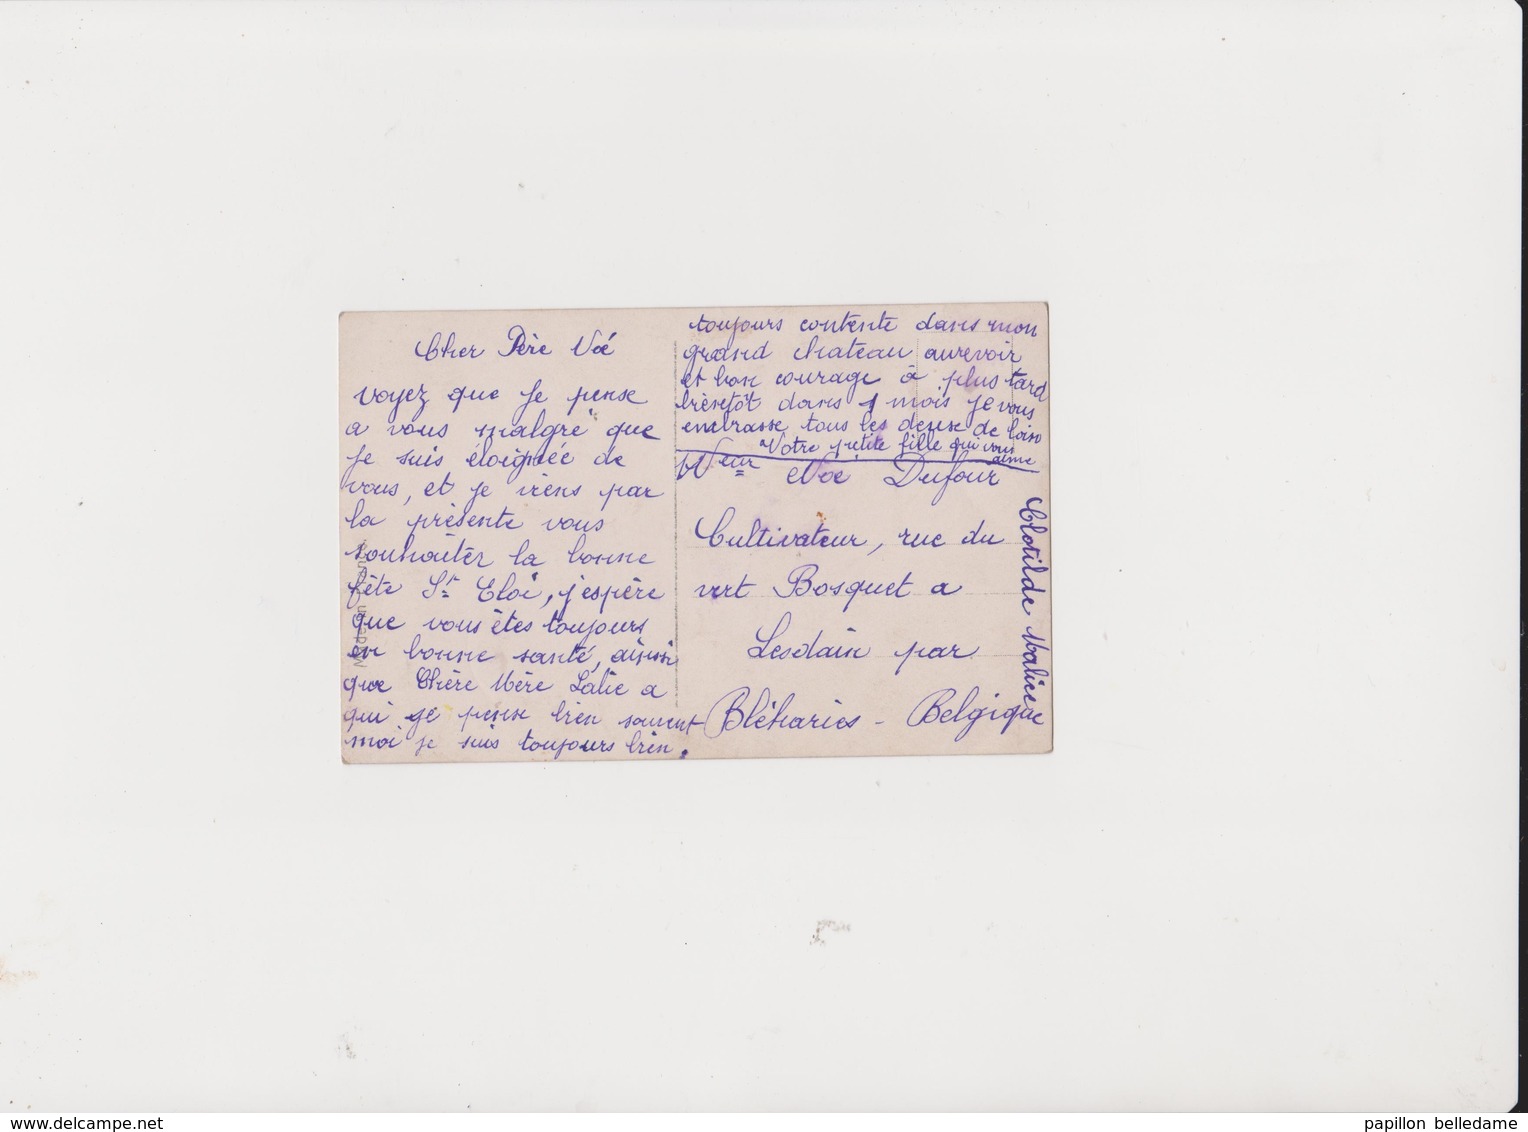 Cher Père Noé
voyez que je pense
a vous malgré que
je suis éloignée de
vous, et je viens par
la présente vous
souhaiter la bonne
fête St Eloi, j'espère
que vous êtes toujours
en bonne santé, ainsi
que Chère Mère Lalie a
qui je pense bien souvent
moi je suis toujours bien.
toujours contente dans mon
grand chateau aurevoir
et bon courage à plus tard
bientôt dans 1 mois je vous
embrasse tous les deux de loin
Votre petite fille qui vous
aime
Clotilde Malice
Noé Dufour
Cultivateur, rue du
vert Bosquet a
Lesdain par
Bléharies - Belgique
papillon belledame